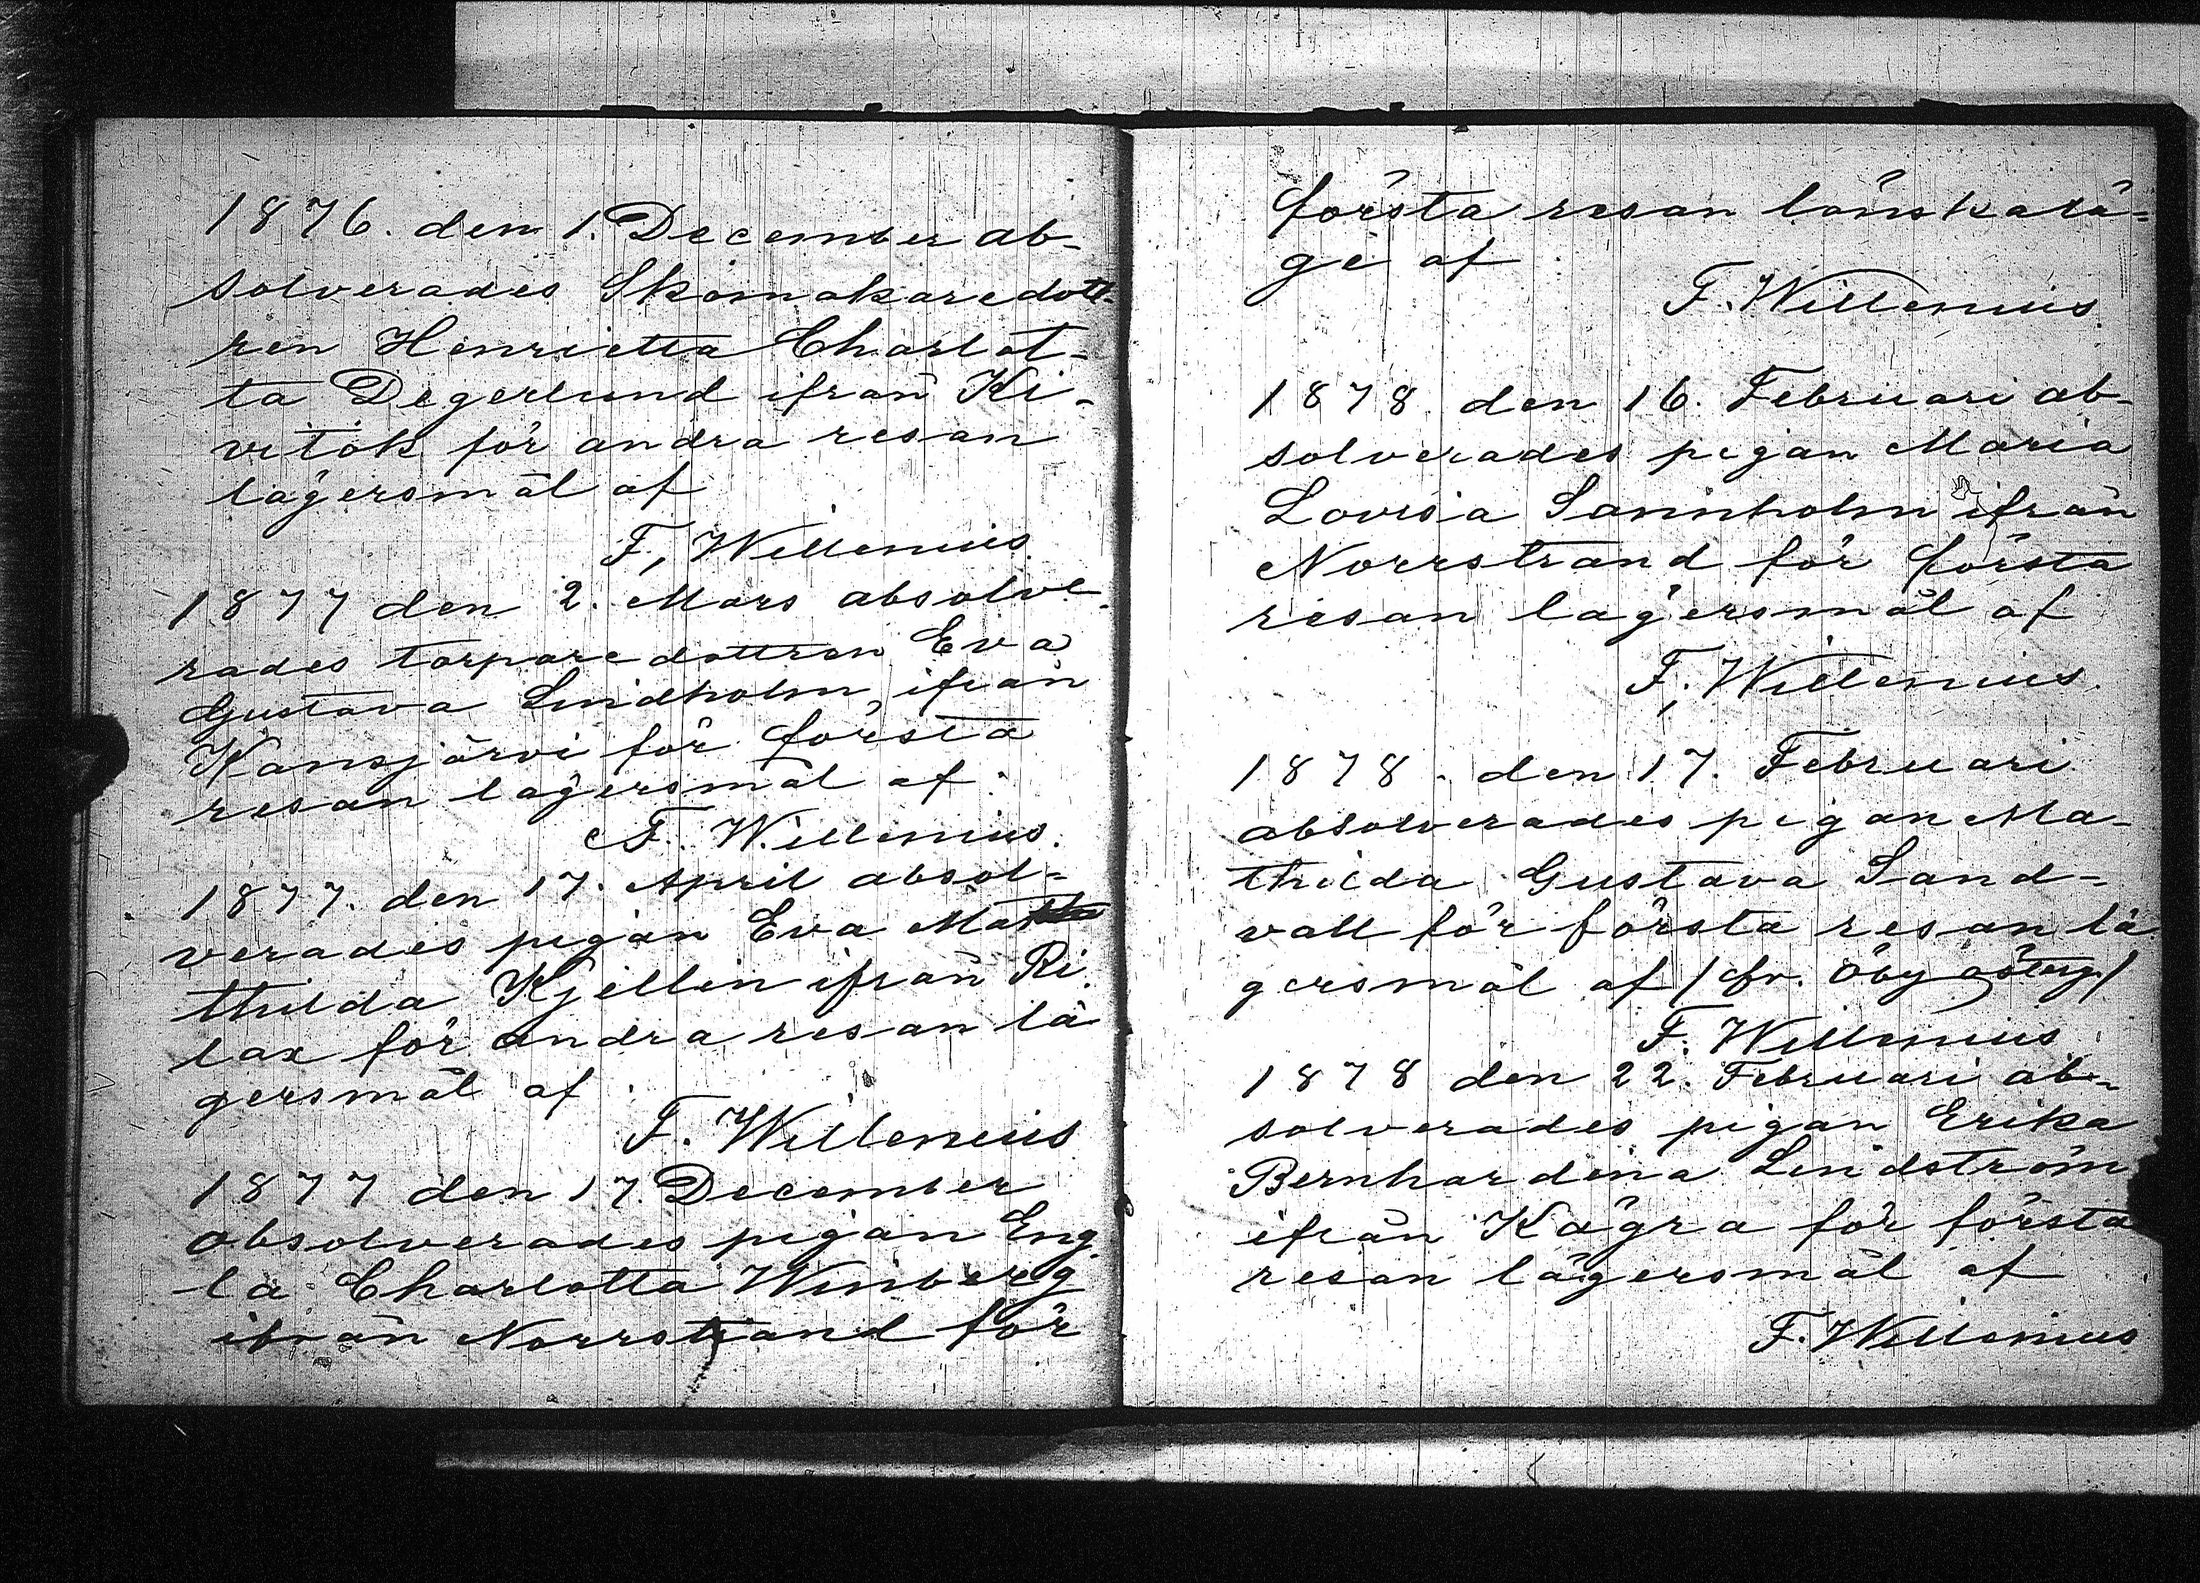 1876. den 1. December ab-
solverades Skomakaredott-
ren Henrietta Charlot-
ta Degerlund ifrån Ki-
vitok för andra resan
lägersmål af
F. Willenius.
1877 den 2. Mars absolve-
rades torparedottren Eva
Gustava Lindholm, ifrån
Kansjärvi för första
resan lägersmål af
F. Willenius.
1877. den 17. April absol-
verades pigan Eva Ma
thilda Kjellin ifrån Ri-
lax för andra resan lä
gersmål af
F. Willenius
1877 den 17. December
absolverades pigan Eng
la Charlotta Winberg
ifrån Norrstrand för
första resan lönskalä-
ge af
F. Willenius.
1878. den 16. Februari ab-
solverades pigan Maria
Lovisa Sannholm ifrån
Norrstrand för första
resan lägersmål af
F. Willenius.
1878. den 17. Februari
absolverades pigan Ma-
thilda Gustava Sand-
vall för första resan lä
gersmål af /fr. Öby
F. Willenius
1878 den 22. Februari ab-
solverades pigan Erika
Bernhardina Lindström
ifrån Kägra för första
resan lägersmål af
F. Willenius